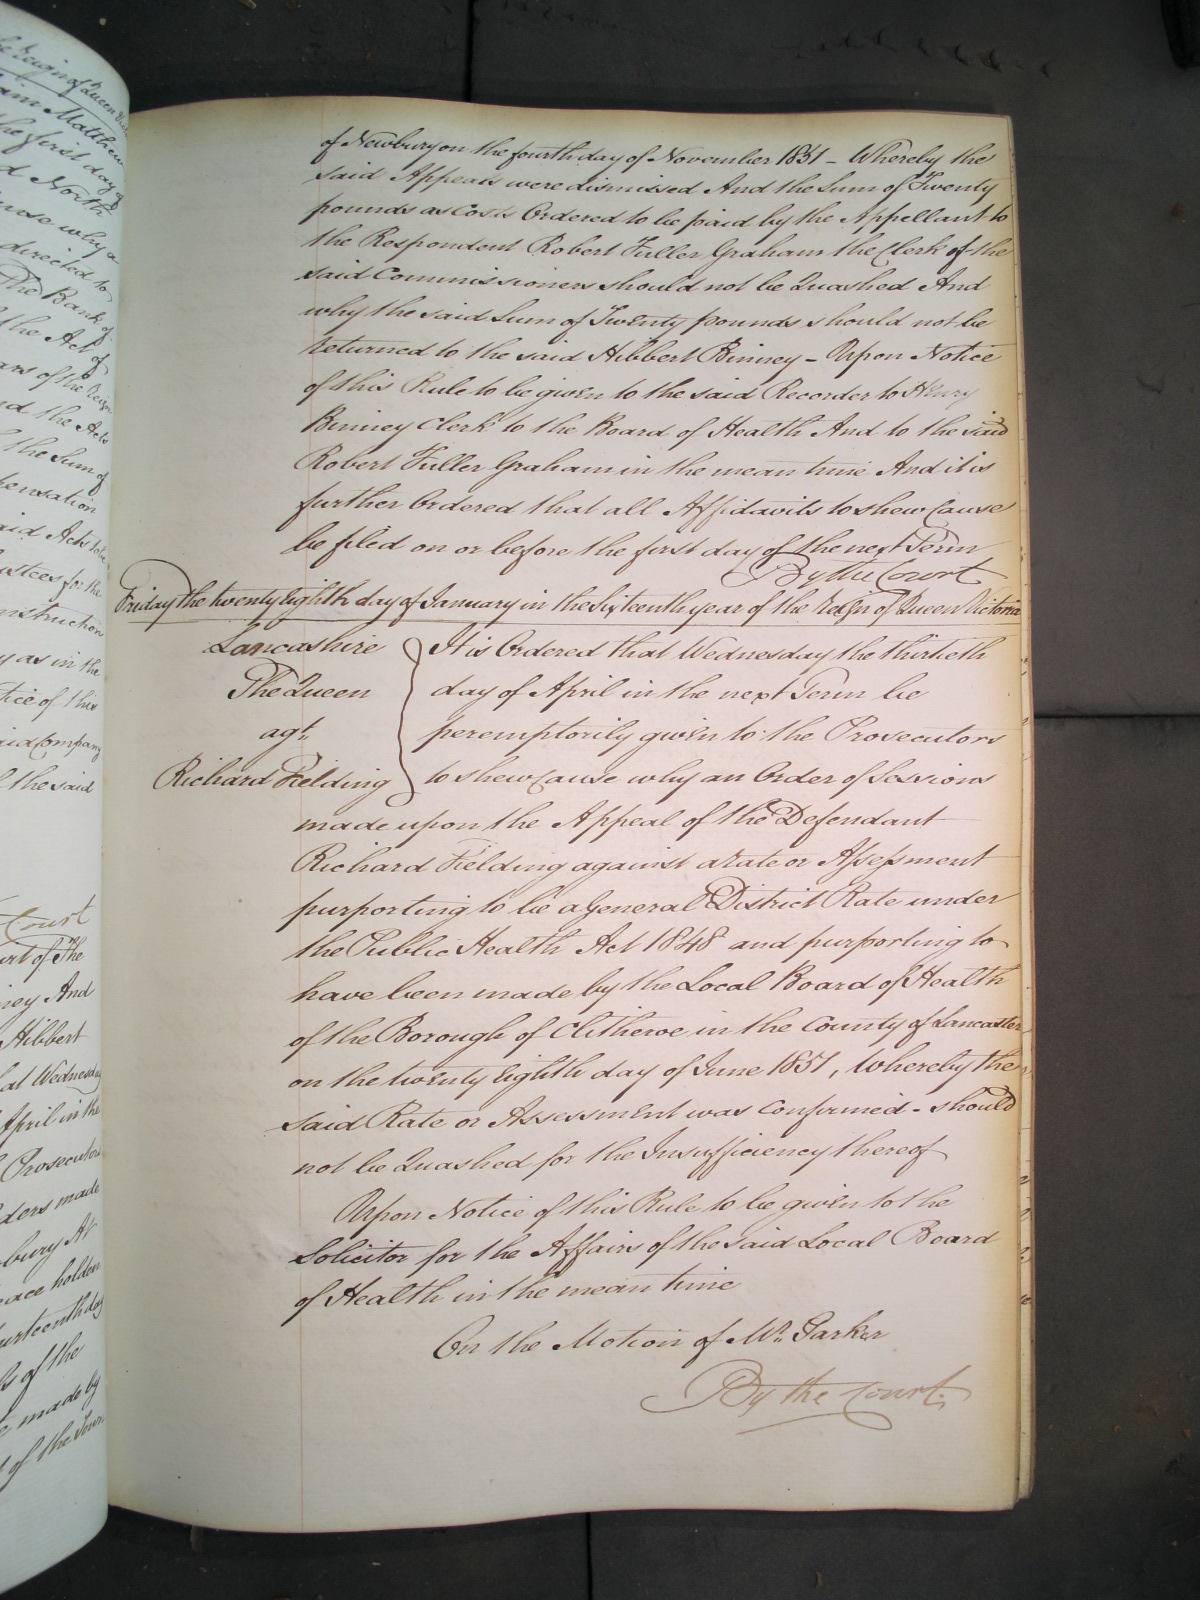 of Newbury on the fourth day of November 1851 – Whereby the
said Appeals were dismissed And the Sum of Twenty
pounds as Costs Ordered to be paid by the Appellant to
the Respondent Robert Fuller Graham the Clerk of the
said Commissioners should not be Quashed And
why the said Sum of Twenty pounds should not be
returned to the said Hibbert Binney – Upon Notice
of this Rule to be given to the said Recorder to Henry
Binney Clerk to the Board of Health And to the said
Robert Fuller Graham in the mean time And it is
further Ordered that all Affidavits to shew Cause
be filed on or before the first day of the next Term
By the Court
Friday the twenty Eighth day of January in the Sixteenth year of the Reign of Queen Victoria
Lancashire
The Queen
agt.
Richard Fielding
It is Ordered that Wednesday the thirtieth
day of April in the next Term be
peremptorily given to the Prosecutors
to shew Cause why an Order of Sessions
made upon the Appeal of the Defendant
Richard Fielding against a Rate or Assessment
purporting to be a General District Rate under
the Public Health Act 1848 and purporting to
have been made by the Local Board of Health
of the Borough of Clitheroe in the County of Lancaster
on the twenty Eighth day of June 1851, Whereby the
said Rate or Assessment was Confirmed - should
not be Quashed for the Insufficiency thereof
Upon Notice of this Rule to be given to the
Solicitor for the Affairs of the said Local Board
of Health in the mean time
On the Motion of Mr. Parker
By the Court.